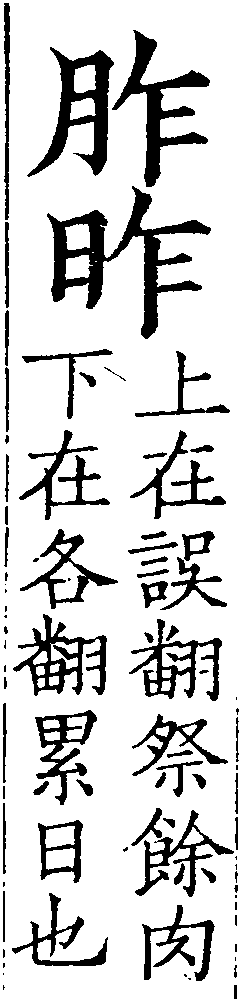 胙昨
上在誤翻祭餘肉
下在各翻累日也